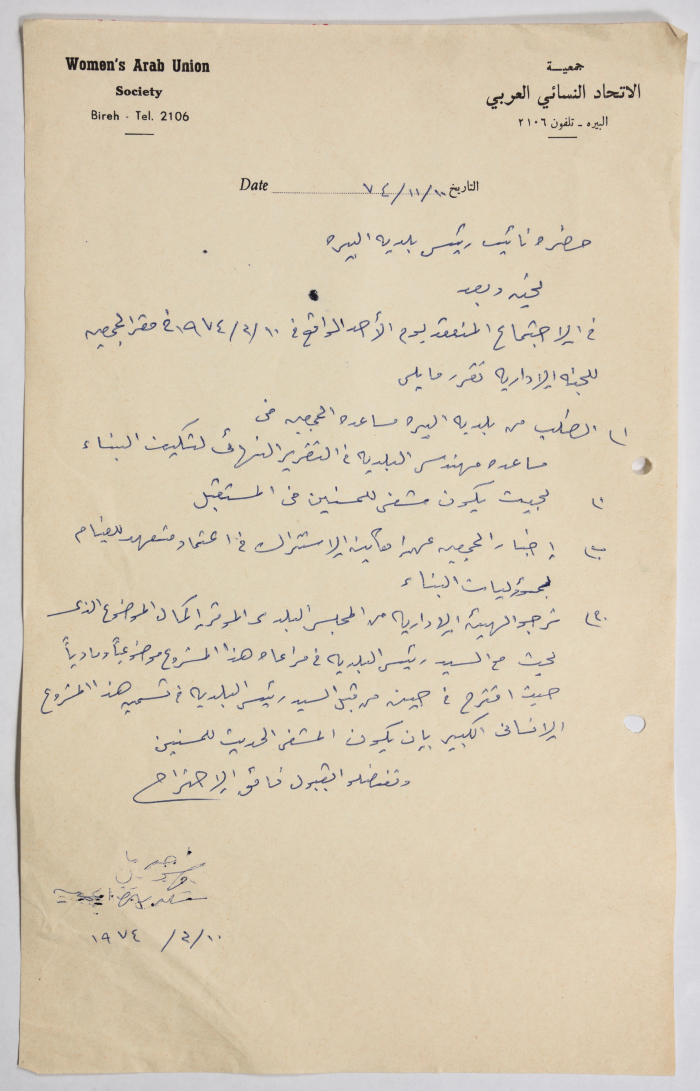 Women's Arab Union
Society
Bireh - Tel. 2106
جمعيـــة
الاتحاد النسائي العربي
البيره ـ تلفون ٢١٠٦
Date ٧٤/١١/١٠ التاريخ
حضرة نائب رئيس بلدية البيره
تحيه وبعد
في الاجتماع المنعقد يوم الأحد الواقع في ١٠/٣/١٩٧٤ في مقر الجمعيه
للجنه الاداريه تقرر ما يلي
١) الطلب من بلدية البيره مساعدة الجمعيه في
مساعدة مهندس البلديه في التقرير النهائي البناء
بحيث يكون مشفى للمسنين في المستقبل
إخبار الجمعيه عن امكانية الاشتراك في اعتماد متعهد للقيام
البناء
٣) ترجو الهيئة الاداريه من المجلس البلدي الموقر اكمال الموضوع الذي
بحث مع السيد رئيس البلديه في مراعاة هذا المشروع موضوعياً ومادياً
حيث اقترح في حينه من قبل السيد رئيس البلديه في تسميه هذا المشروع
الانساني الكبير بان يكون المشفى الحديث للمسنين
وتفضلوا بقبول فائق الاحترام
١٠/٣/ ١٩٧٤